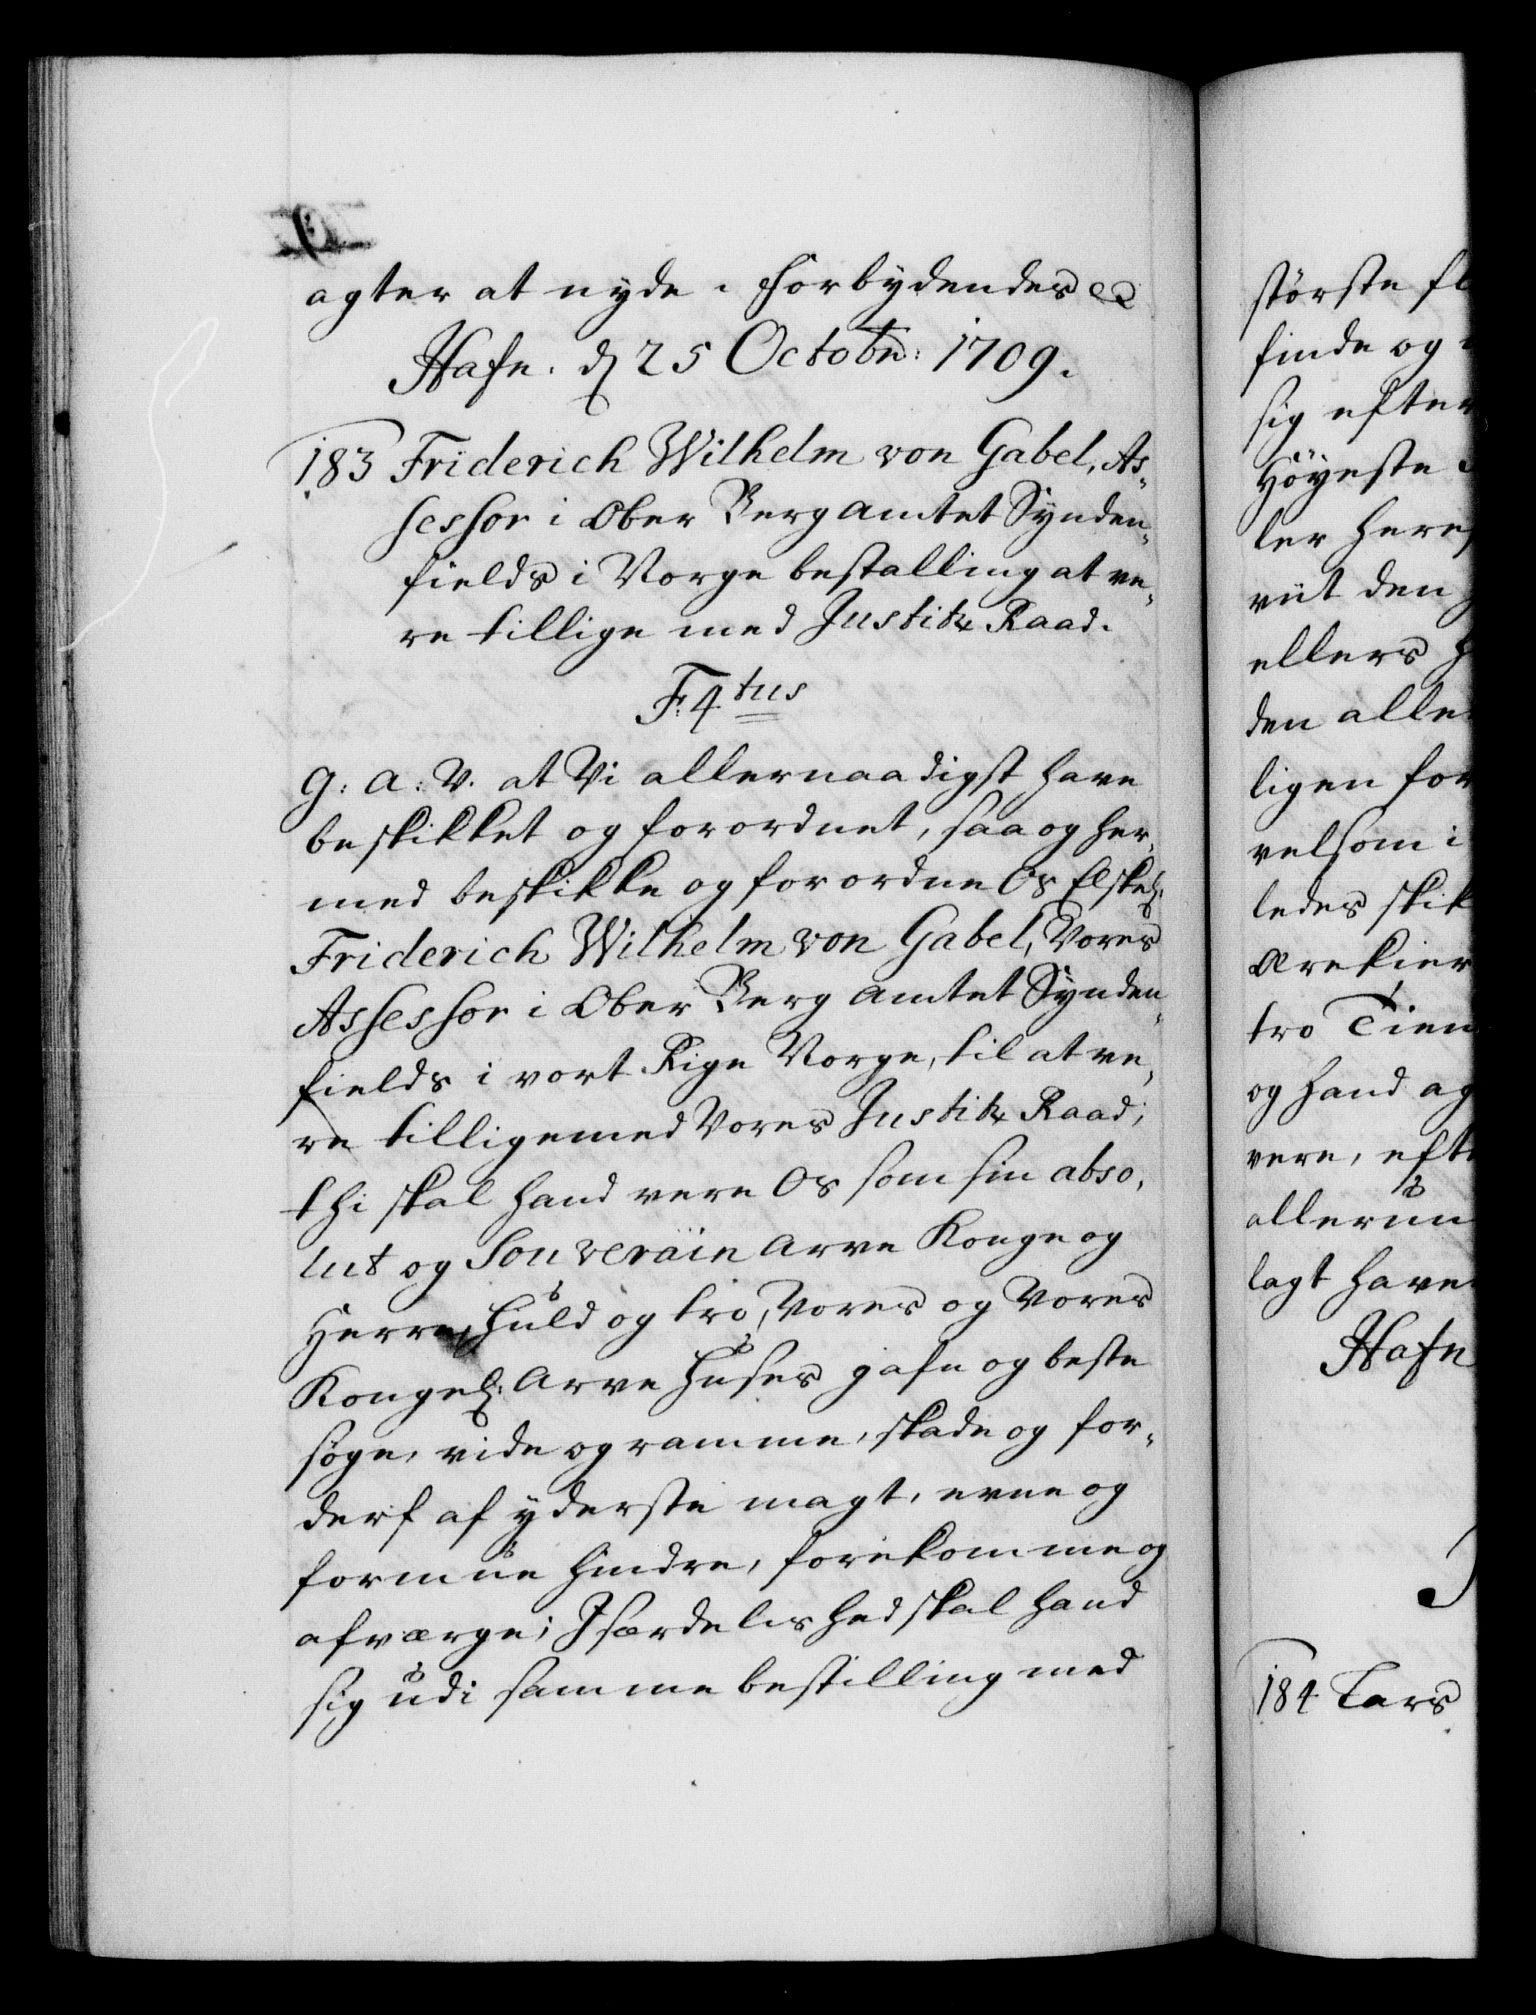 agter at nyde. Forbydendes etc
Hafn. d 25 Octobr: 1709.
183 Friderich Wilhelm von Gabel, As-
sessor i Ober Berg Amtet Synden-
fields i Norge bestalling at ve-
re tillige med Justitz Raad.
F: 4tus
G: A: V. at Vi allernaadigst have
beskikket og forordnet, saa og her-
med beskikke og forordne Os Elskel:
Friderich Wilhelm von Gabel, Vores
Assessor i Ober Berg Amtet Synden-
fields i vort Rige Norge, til at ve-
re tilligemed Vores Justitz Raad;
thi skal hand vere Os som sin abso-
lut og Souverain Arve Konge og
Herre, huld og tro, Vores og Vores
Kongel: Arve Huses gafn og beste
søge, vide og ramme, skade og for-
derf af yderste magt, evne og
formue hindre, forekomme og
afværge; Iserdelished skal hand
sig udi samme bestilling med
største fl
finde og
sig efter
Høyeste
ler heref
viit den
ellers
den alle
ligen for
velsom i
ledes skik
Ærekier
tro Tien
og hand ag
vere, efte
allerun
lagt have
Hafn
184 Lars